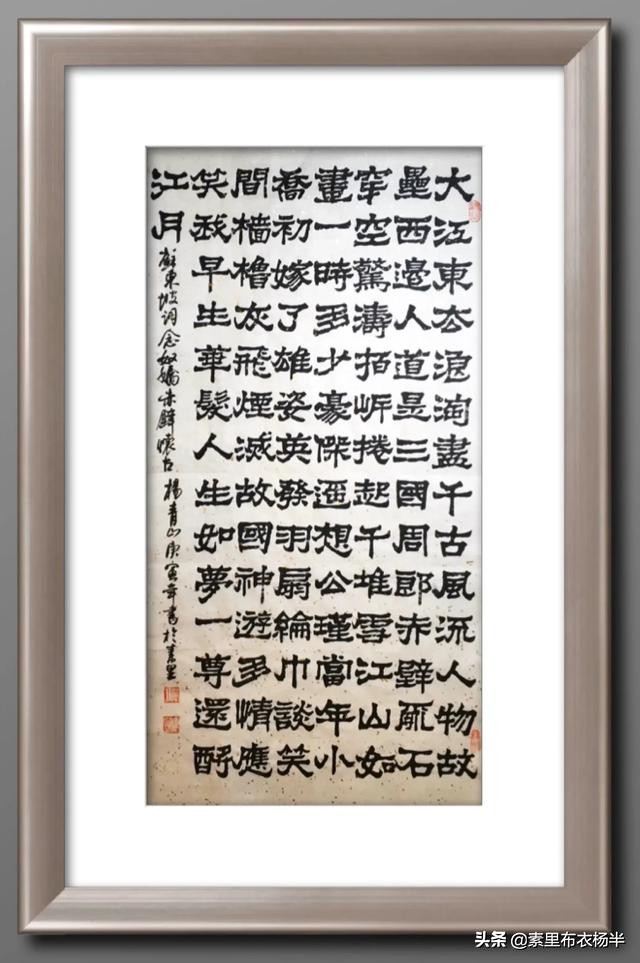 大江東去浪淘盡千古風流人物故
壘西邊人道是三國周郎赤壁亂石
穿空驚濤拍岍捲起千堆雪江山如
畫一時多少豪傑遥想公瑾當年小
喬初嫁了雄姿英發羽扇綸巾談笑
間檣櫓灰飛煙滅故國神遊多情應
笑我早生華髮人生如夢一尊還酹
江月
蘇東坡詞念奴嬌赤壁懷古 楊青山庚寅年書於素里
头条 @素里布衣杨半